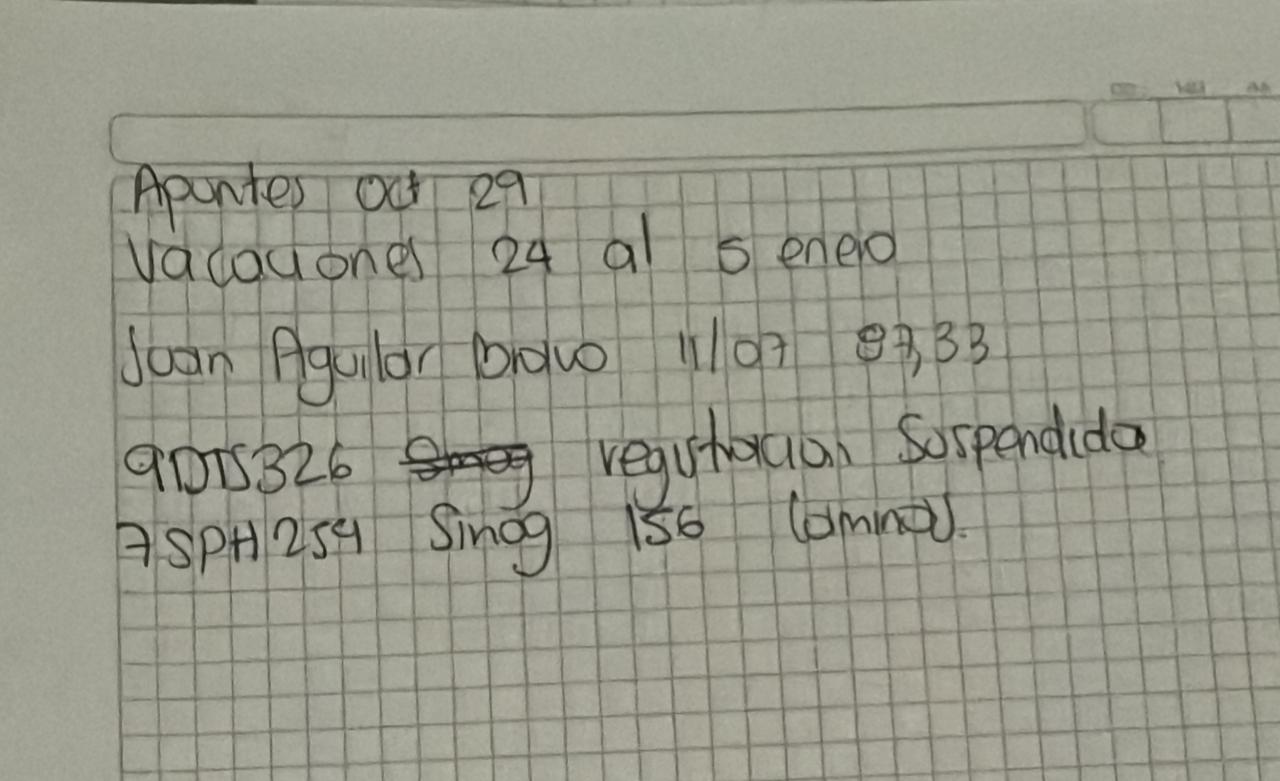 Apuntes oct 29
Vacaciones 24 al 5 enero
Juan Aguilar bravo 11/07 97,33
9DTS326 registracion Suspendida
7SPH254 Smog 156 laminas.